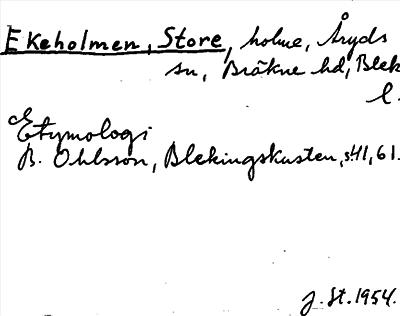 Ekeholmen, Store, holme, Åryds
sn, Bräkne hd, Blek
l.
Etymologi
B. Ohlsson, Blekingskusten, s. 41, 61.
J. St. 1954.